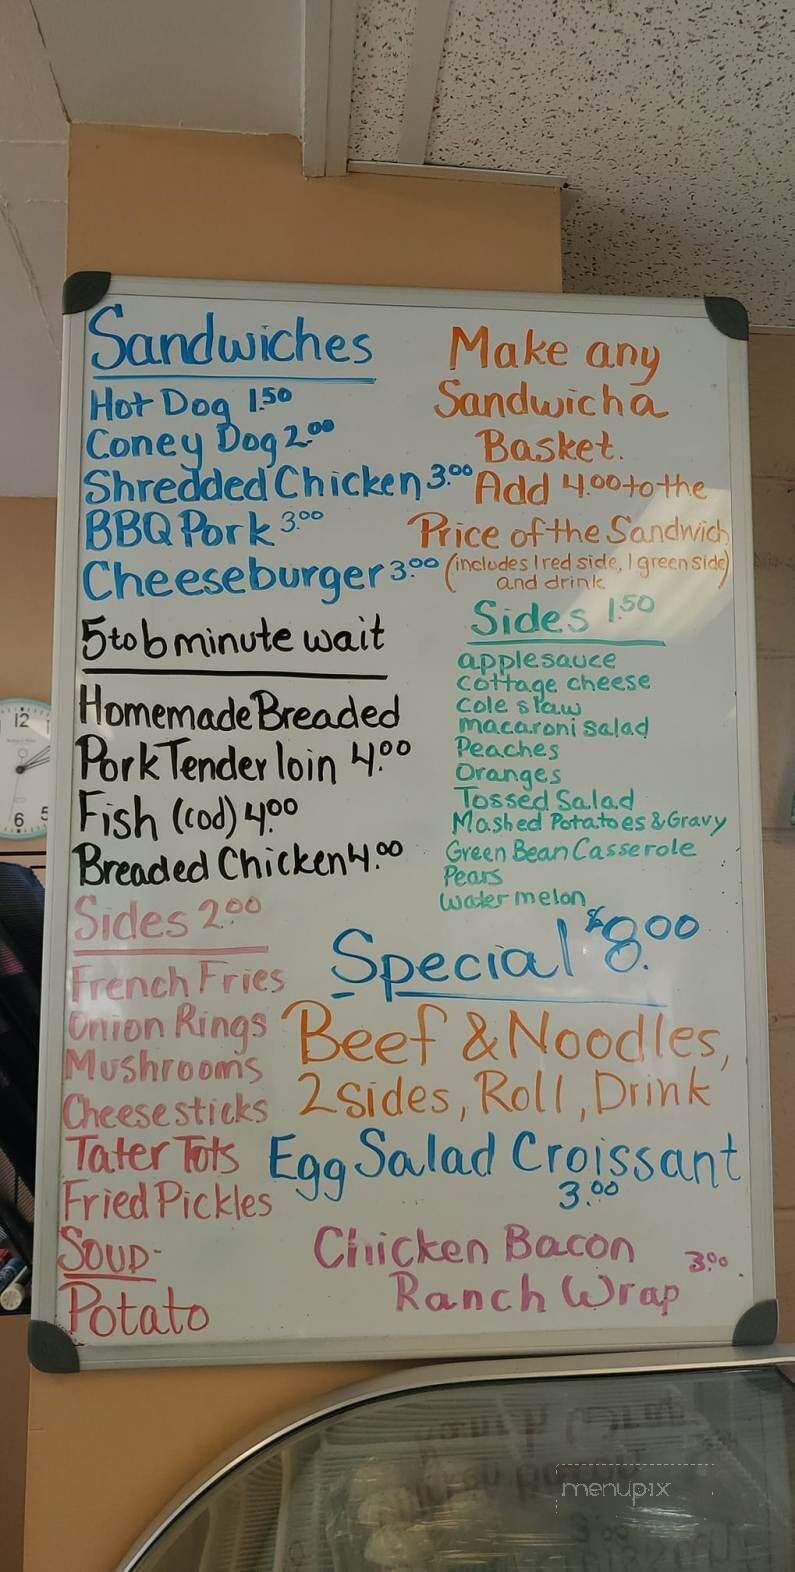 Sandwiches
Hot Dog 1.50
Coney Dog 2.00
Shredded Chicken 3.00
BBQ Pork 3.00
Cheeseburger 3.00
Make any
Sandwich a
Basket.
Add 4.00 to the
Price of the Sandwich
(includes 1 red side, 1 green side)
and drink
5 to 6 minute wait
Homemade Breaded
Pork Tenderloin 4.00
Fish (cod) 4.00
Breaded Chicken 4.00
Sides 1.50
applesauce
cottage cheese
cole slaw
macaroni salad
Peaches
Oranges
Tossed Salad
Mashed Potatoes & Gravy
Green Bean Casserole
Pears
watermelon
Sides 2.00
French Fries
Onion Rings
Mushrooms
Cheesesticks
Tater Tots
Fried Pickles
Soup-
Potato
Special $8.00
Beef & Noodles,
2 sides, Roll, Drink
Egg Salad Croissant
3.00
Chicken Bacon
Ranch Wrap 3.00
12
6 5
menupix